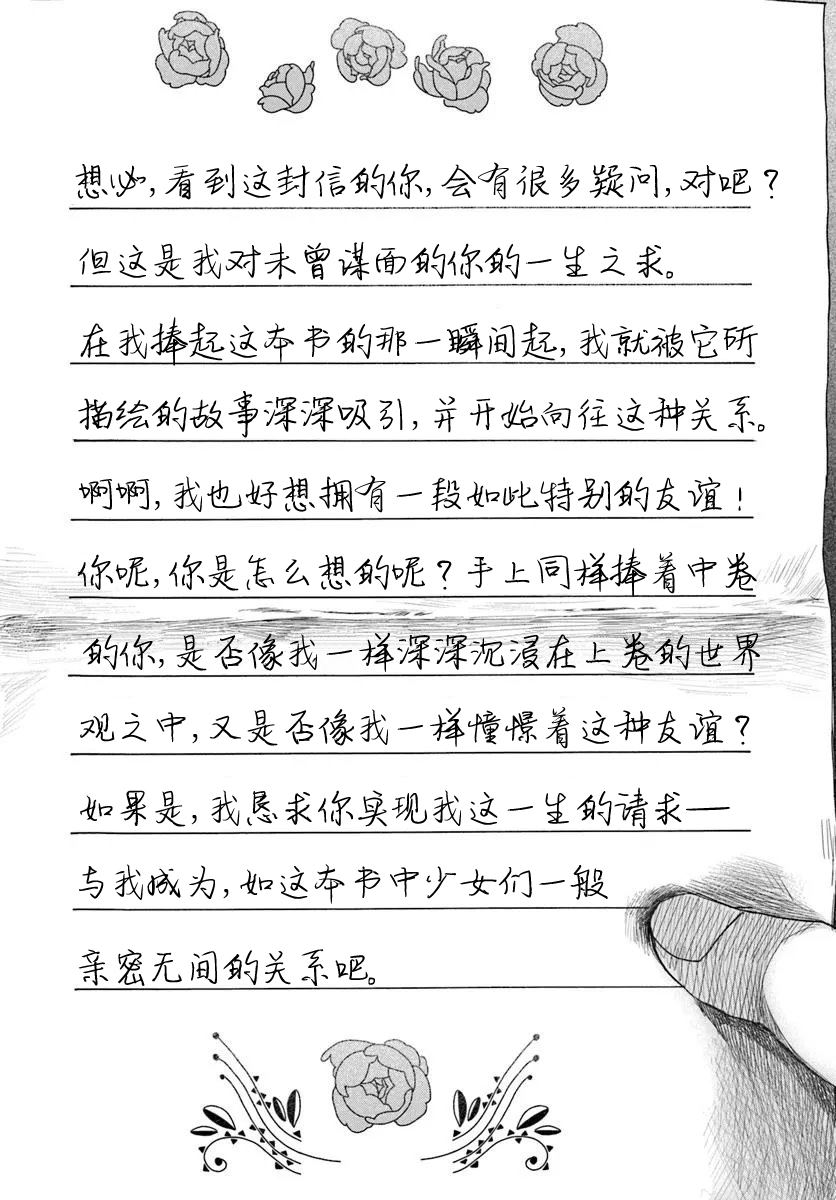 想必,看到这封信的你,会有很多疑问,对吧?
但这是我对未曾谋面的你的一生之求。
在我捧起这本书的那一瞬间起,我就被它所
描绘的故事深深吸引,并开始向往这种关系。
啊啊,我也好想拥有一段如此特别的友谊!
你呢,你是怎么想的呢?手上同样捧着中卷
的你,是否像我一样深深沉浸在上卷的世界
观之中,又是否像我一样憧憬着这种友谊?
如果是,我恳求你实现我这一生的请求——
与我成为,如这本书中少女们一般
亲密无间的关系吧。